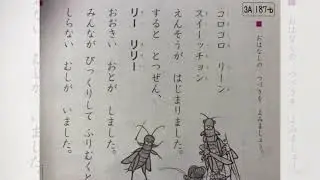 3A 187-b
おはなしの つづきを よみましょう。
コロコロ リーン
スイーッチョン
えんそうが はじまりました。
すると とつぜん、
リー リリー
おおきい おとが しました。
みんなが びっくりして ふりむくと
しらない むしが いました。